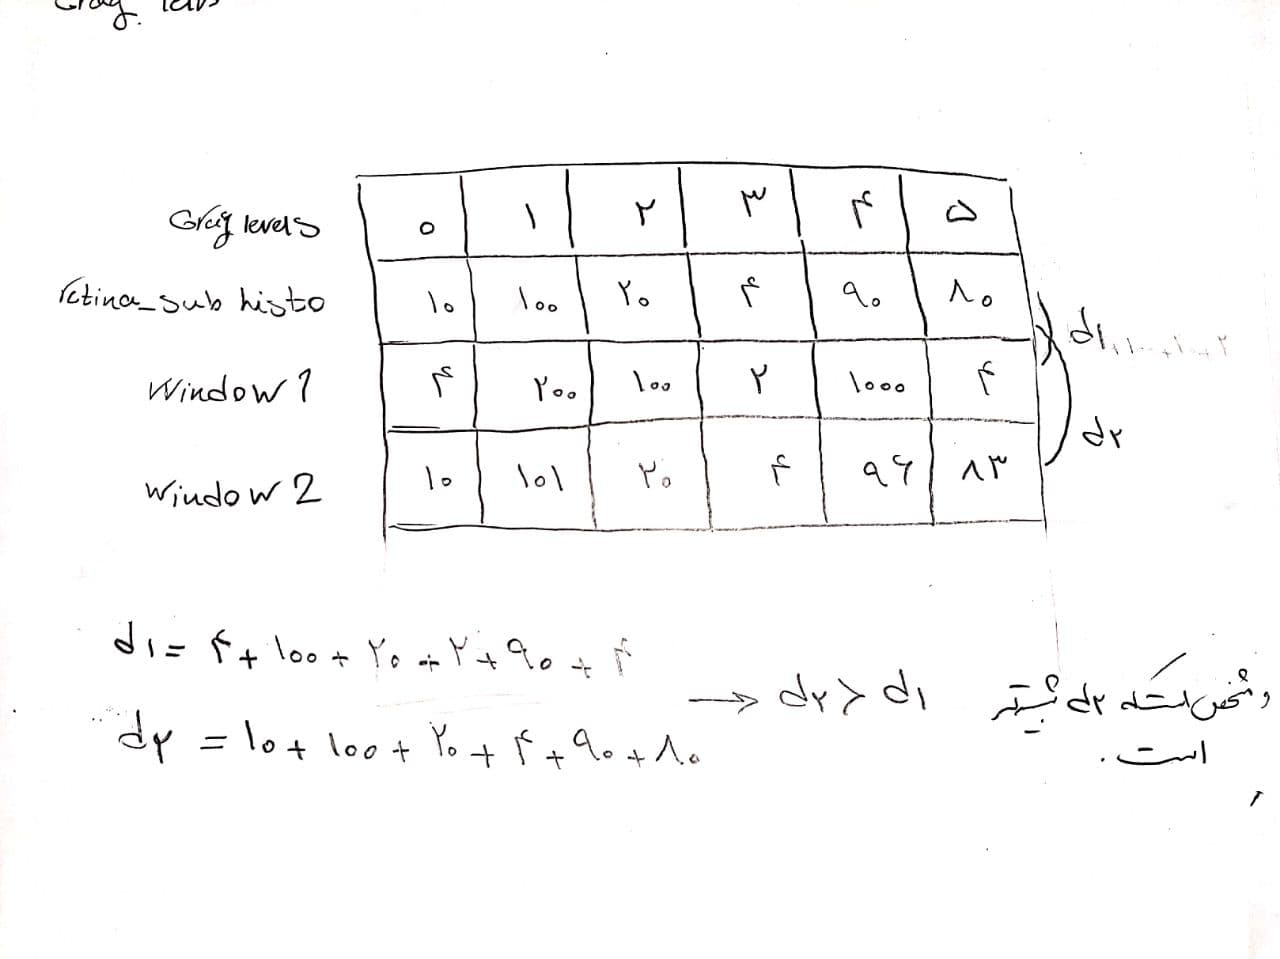 Gray levels
Gray levels ۰ ۱ ۲ ۳ ۴ ۵
retina_sub histo ۱۰ ۱۰۰ ۲۰ ۴ ۹۰ ۸۰
d۱
Window 1 ۴ ۲۰۰ ۱۰۰ ۲ ۱۰۰۰ ۴
d۲
Window 2 ۱۰ ۱۰۱ ۲۰ ۴ ۹۶ ۸۳
d۱ = ۴ + ۱۰۰ + ۲۰ + ۲ + ۹۰ + ۴
d۲ = ۱۰ + ۱۰۰ + ۲۰ + ۴ + ۹۰ + ۸۰
→ d۲ > d۱
و مشخص است که d۲ بیشتر
است.